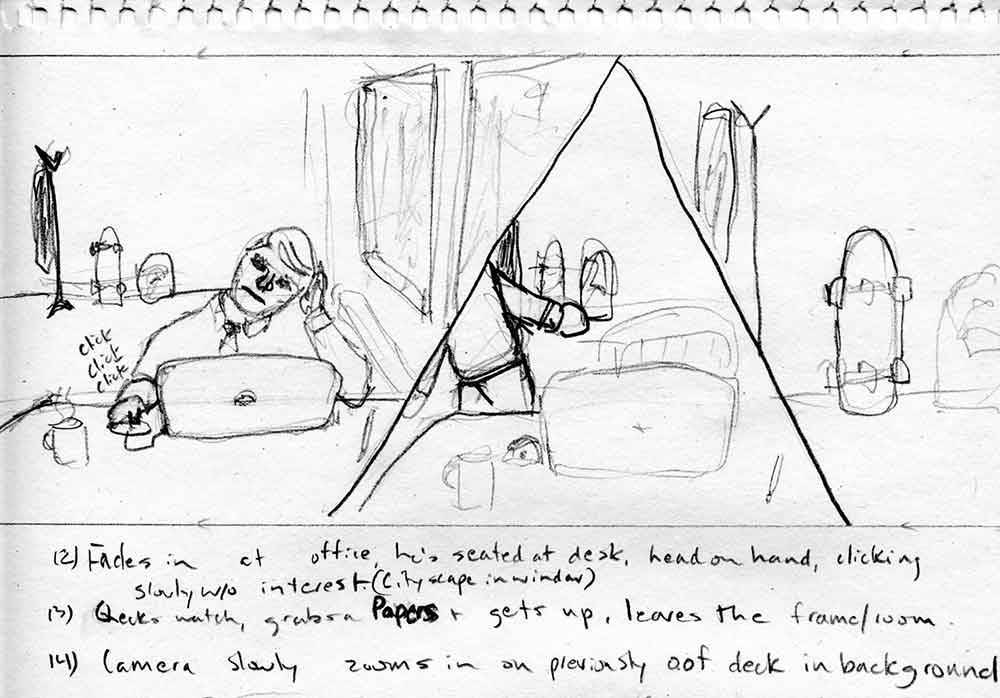 click
click
click
12) Fades in at office, he's seated at desk, head on hand, clicking
slowly w/o interest. (Cityscape in window)
13) Checks watch, grabs a Papers + gets up, leaves the frame/room.
14) Camera slowly zooms in on previously oof deck in background